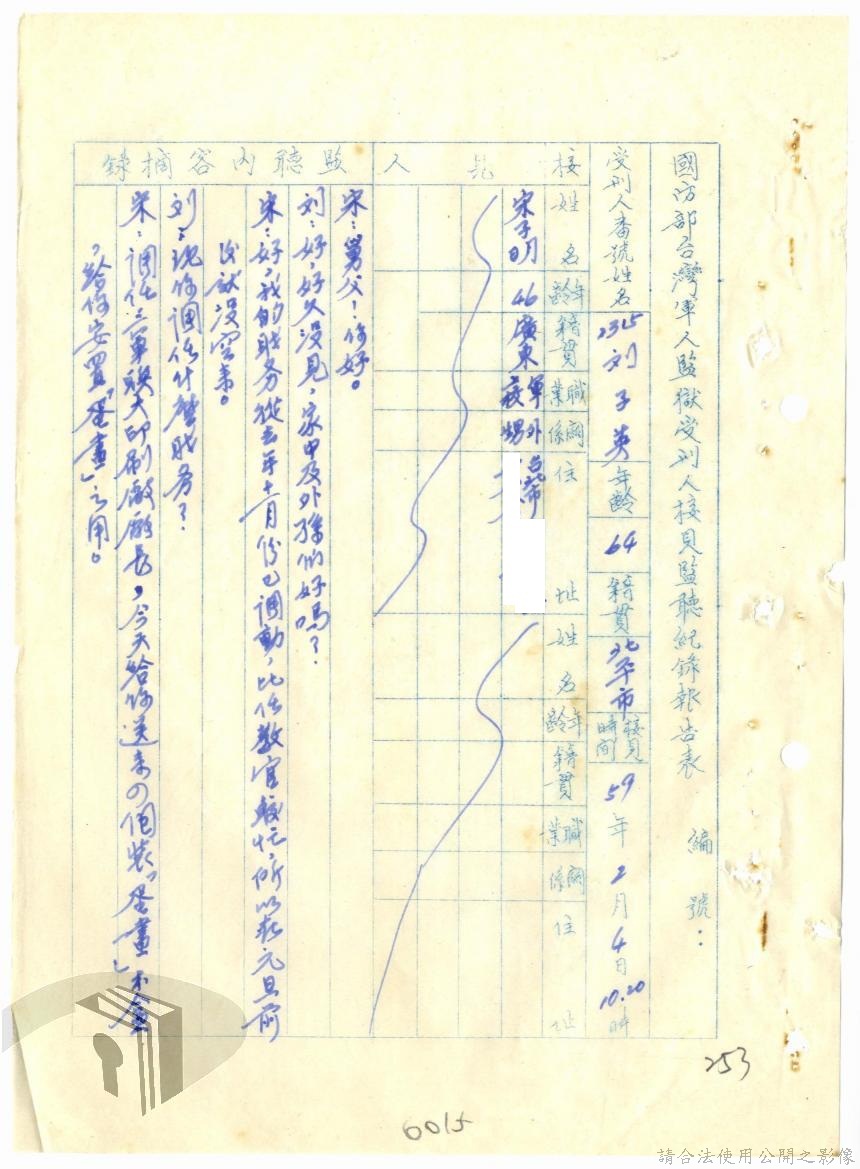 國防部台灣軍人監獄受刑人接見監聽紀錄報告表 編號：
受刑人番號姓名 2315 刘子英 年齡 64 籍貫 北平市 接見時間 59年2月4日10.20時
接見人 姓名 年齡 籍貫 職業 關係 住址 姓名 年齡 籍貫 職業 關係 住址
宋子明 46 廣東 軍 外甥 台北市
監聽內容摘錄
宋：舅父！你好。
刘：好，好久沒見，家中及外孫們好嗎？
宋：好，我的职务從去年十一月份已調動，比任教官較忙，所以我元旦前
後就沒空來。
刘：現你調任什麼职务？
宋：調任三軍联大印刷廠廠長，今天給你送来の個裝「蛋畫」木盒
，給你安置「蛋畫」之用。
253
6015
請合法使用公開之影像